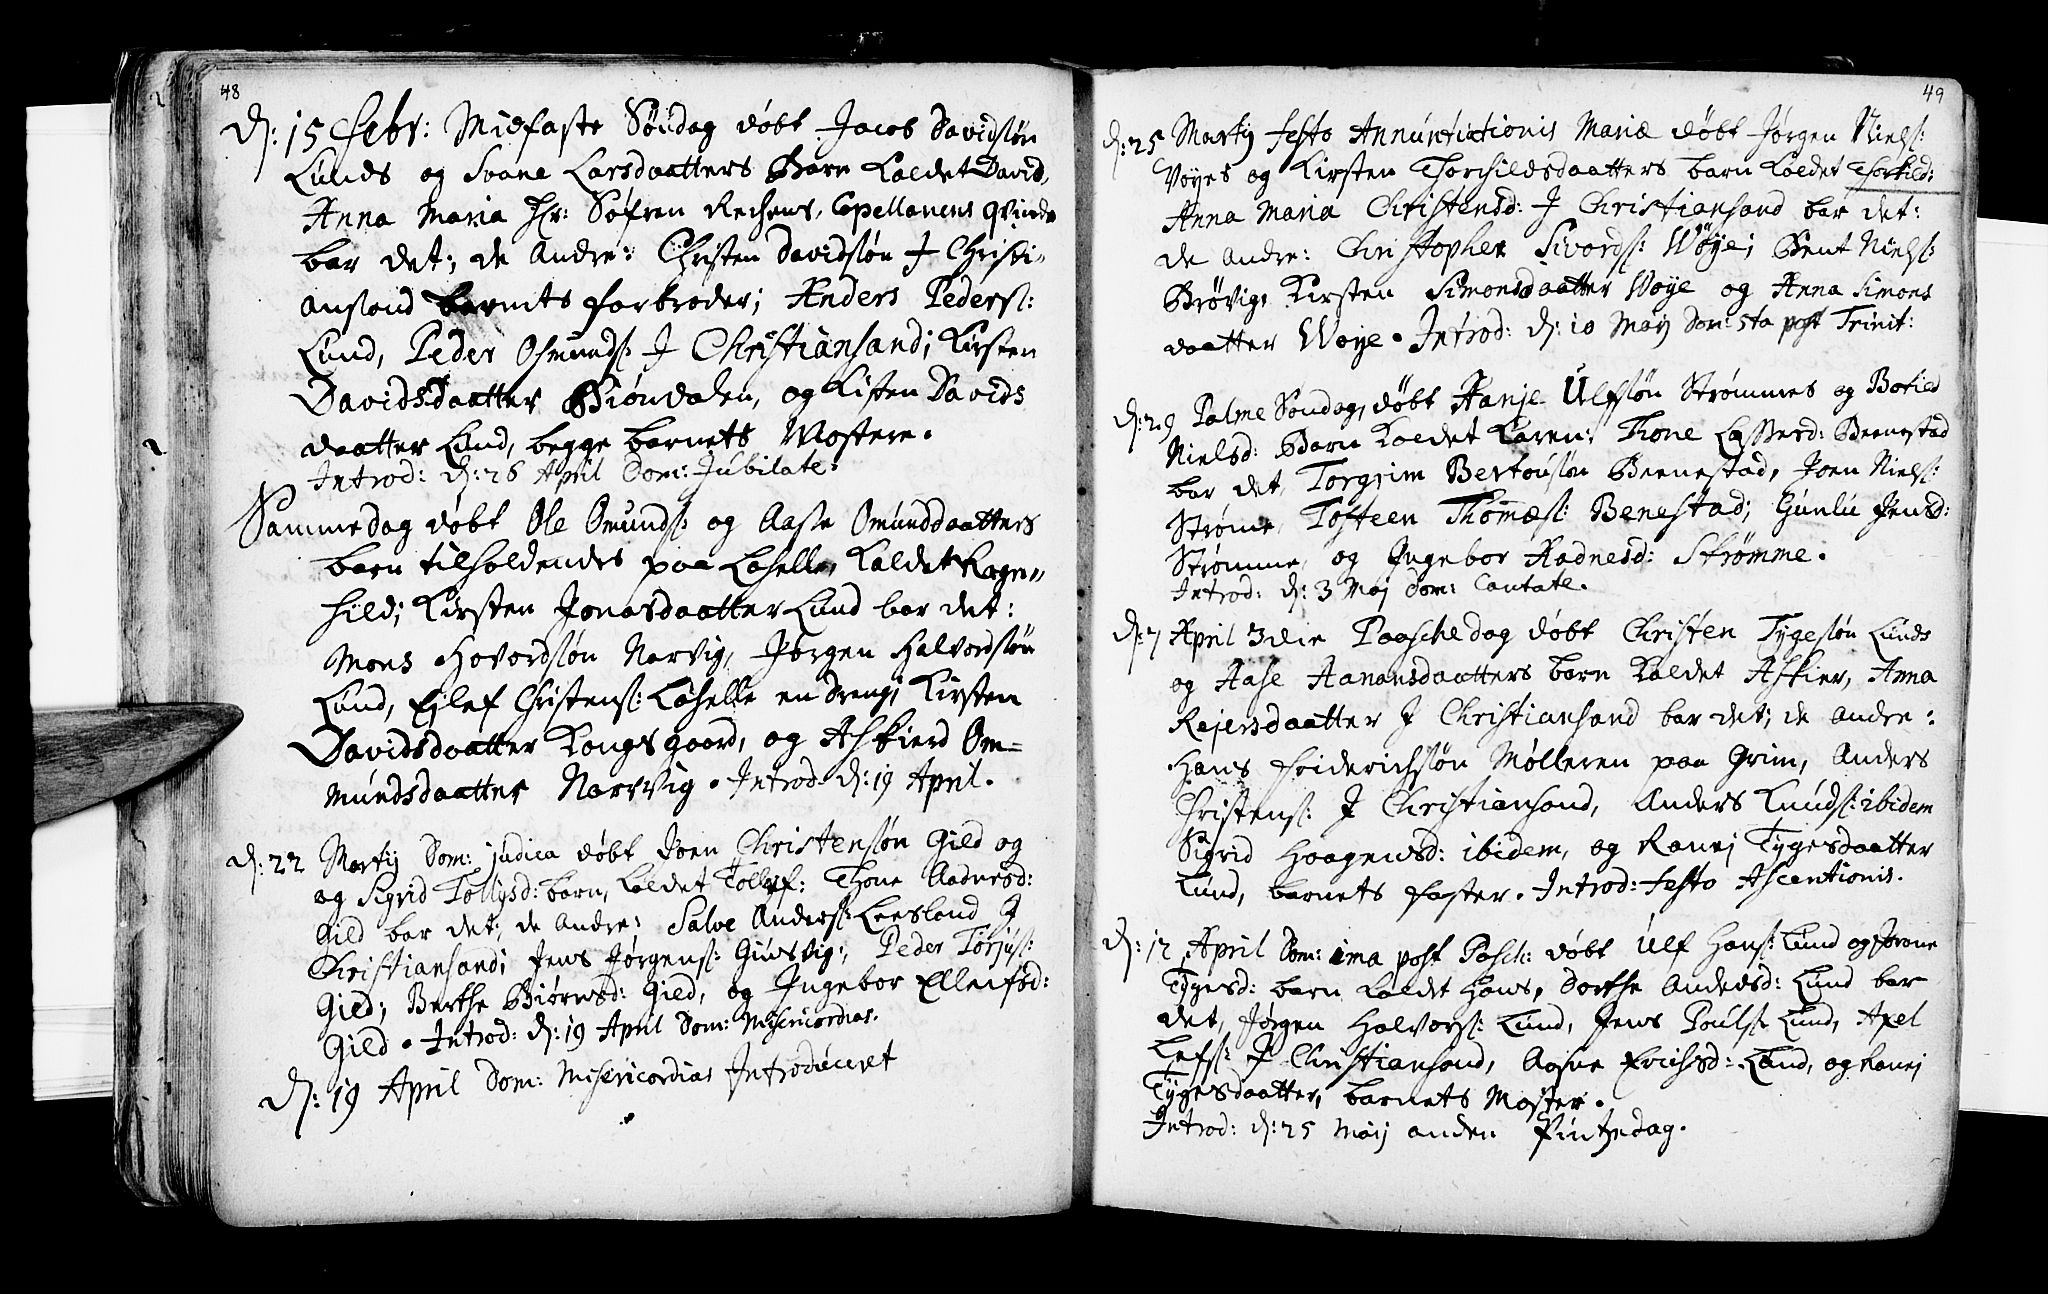 48
D: 15 Febr: Midfaste Søndag døbt Jacob Davidsøn
Lunds og Svane Larsdaatters Barn kaldet David,
Anna Maria Hr: Søfren Capellanens qvinde
bar det; de Andre: Christen Davidsøn J Christi-
ansand barnits farbroder; Anders Peders:
Lund, Peder Osmunds: J Christiansand; Kirsten
Davidsdaatter Biøndalen, og Kisten Davids
daatter Lund, begge barnets Mostere.
Introd: d: 26 April Dom: Jubilate:
Sammedag døbt Ole Omunds: og Aase Omunddaatters
barn tilholdendes paa Lahelle, kaldet Ragn=
hild; Kirsten Jonasdaatter Lund bar det:
Mons Hovordsøn Narvig, Jørgen Halvordsøn
Lund, Ejlef Christens: Lahelle en dreng; Kirsten
Davidsdaatter Kongsgaard, og Askierd Om=
mundsdaatter Narvig. Introd: d: 19 April.
D: 22 Martij Dom: judica døbt Joen Christensøn Gild og
og Sigrid Tollysd: barn, kaldet Tollef: Thone Aadnesd:
Gild bar det; de andre: Salve Anders: Leesland J
Christiansand; Jens Jørgens: Gusvig; Peder Torjus:
Gild; Berthe Biørnsd: Gild, og Ingebor Ellefsd:
Gild. Introd: d: 19 April Dom: Misericordias.
D: 19 April Dom: Misericordias Introduceret
49
D: 25 Martij Festo Annuntiationis Mariæ døbt Jørgen Niels:
Vøyes og Kirsten Thorchildsdaatters barn kaldet Thorkild:
Anna Maria Christensd: J Christiansand bar det:
de andre: Christopher Sivords: Wøye; Bent Niels:
Brøvig, Kirsten Simonsdaatter Wøye og Anna Simons
daatter Wøye. Introd: d: 10 Maij Dom: 5ta post Trinit:
D: 29 Palme Søndag, døbt Hanje Ulfsøn Strømmes og Botild
Nielsd: Barn kaldet Karen; Thone Beenestad
bar det, Torgrim Bertousøn Beenestad, Joen Niels:
Strøme, Tosteen Thomæs: Benestad; Gunlu Jensd:
Strømme, og Ingebor Hadnesd: Strømme.
Introd: d: 3 Maj Dom: Cantate.
D: 7 April 3die Paaschedag døbt Christen Tygesøn Lunds
og Aase Aanonsdaatters barn kaldet Askier, Anna
Rejersdaatter J Christiansand bar det; de andre:
Hans Friderichsøn Mølleren paa Grim, Anders
Christens: J Christiansand, Anders Knuds: ibidem
Sigrid Haagensd: ibidem, og Ranej Tygesdaatter
Lund, barnets faster. Introd: Festo Ascentionis.
D: 12 April Dom: 1ma post Pasch: døbt Ulf Hans: Lund og Jorone
Tygesd: barn kaldet Hans, Dorthe Andersd: Lund bar
det, Jørgen Halvors: Lund, Jens Pouls: Lund, Axel
Lefs: J Christiansand, Aasne Erichsd: Lund, og Ranej
Tygesdaatter, barnets Moster.
Introd: d: 25 Maij anden Pintzedag.